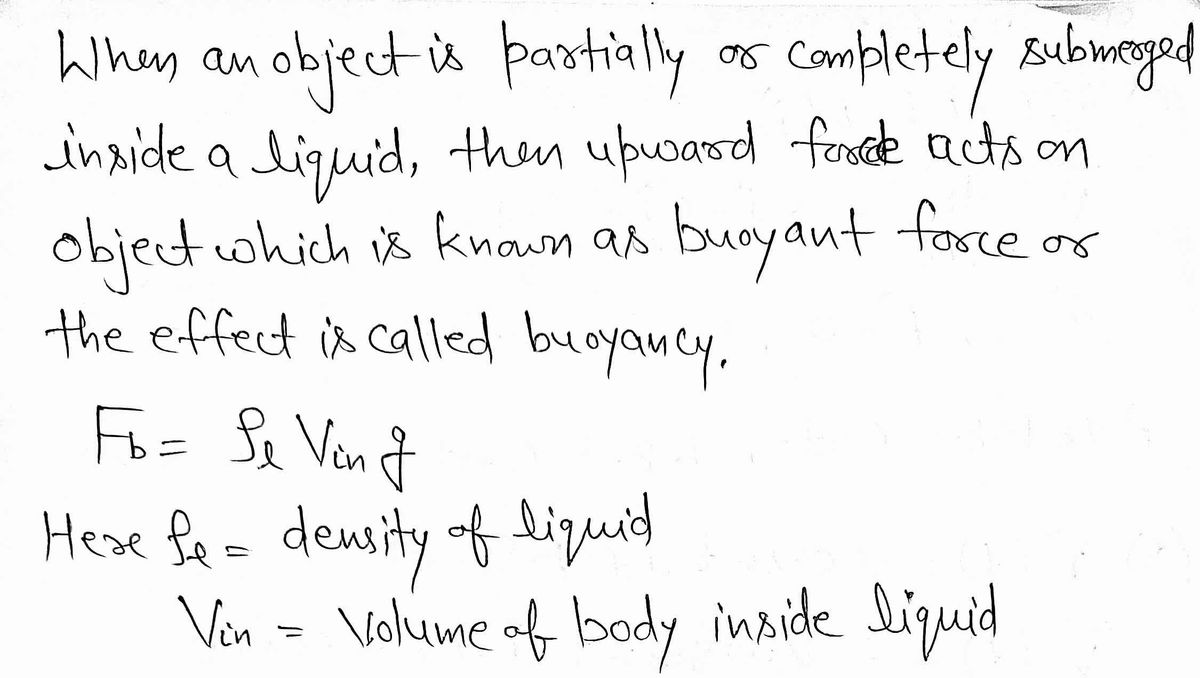 When an object is partially or completely submerged
inside a liquid, then upward force acts on
object which is known as buoyant force or
the effect is called buoyancy.
Fb = ρl Vin g
Here ρl = density of liquid
Vin = Volume of body inside liquid